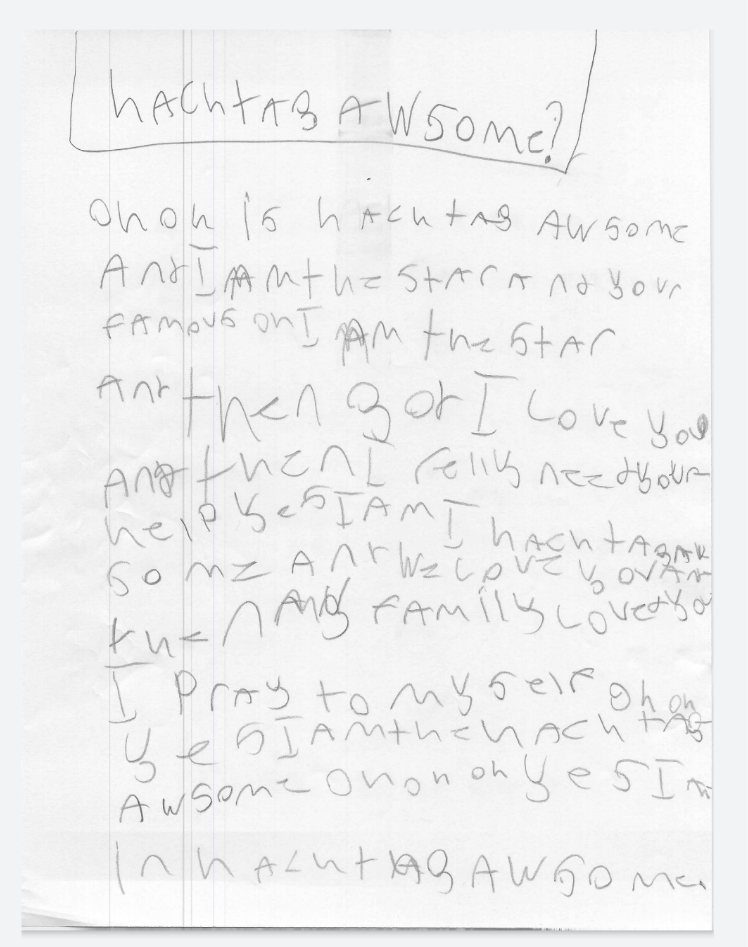 hAChtAG AWSOMe?
Oh oh is hAchtAG AWSOMe
And I AM the StAr And your
FAMOUS oh I AM the StAr
And then god I Love you
And then I relly need your
help yes I AM I hAchtAG AW
SOMe And We Love you An
then My FAMily Loved yo
I PrAy to My Self Oh oh
yes I AM the hAChtAG
AWSOMe Oh oh oh yes I M
In hAchtAG AWSOMe.